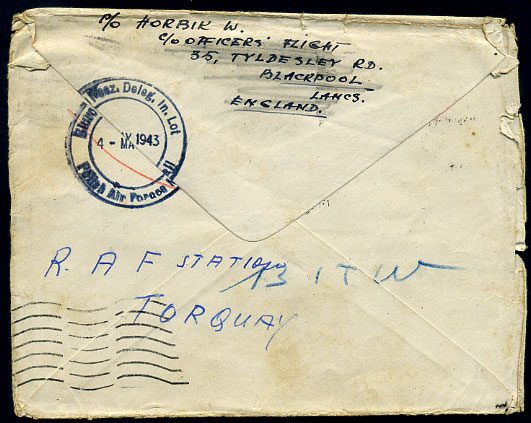 P/O HORBIK W.
C/O OFFICERS' FLIGHT
35, TYLDESLEY RD.
BLACKPOOL
LANCS.
ENGLAND.
Biuro Nacz. Deleg. In. Lot
4 - 1943
Polish Air Forces
R A F STATION
TORQUAY